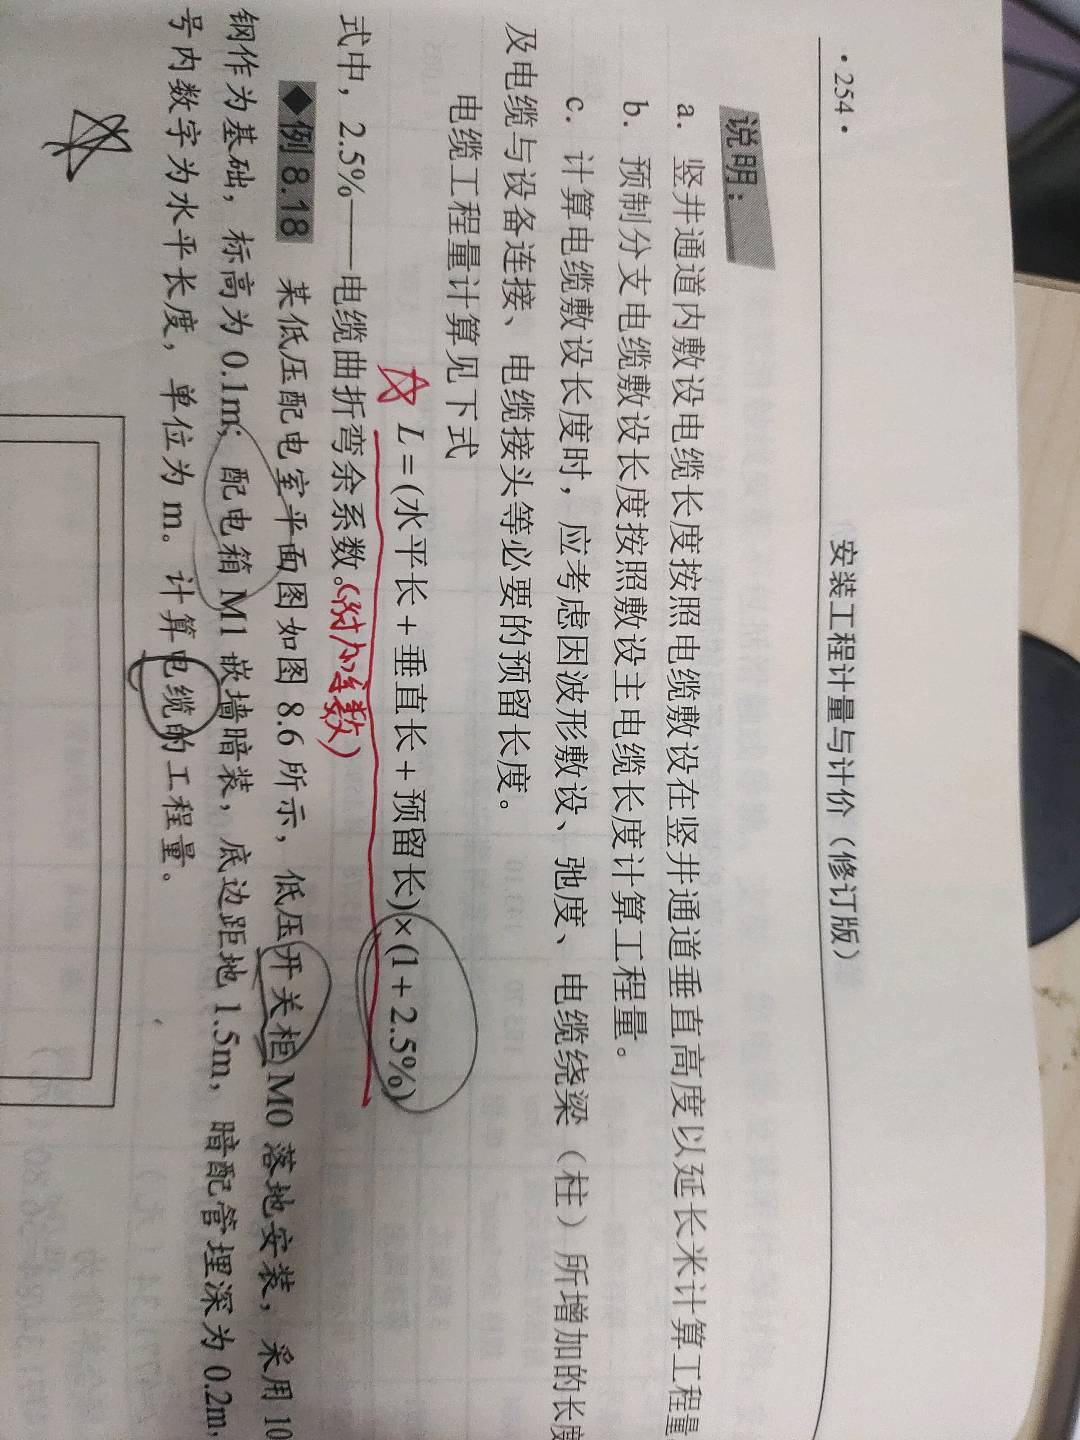 ·254·
安装工程计量与计价（修订版）
说明：
a. 竖井通道内敷设电缆长度按照电缆敷设在竖井通道垂直高度以延长米计算工程量
b. 预制分支电缆敷设长度按照敷设主电缆长度计算工程量。
c. 计算电缆敷设长度时，应考虑因波形敷设、弛度、电缆绕梁（柱）所增加的长度
及电缆与设备连接、电缆接头等必要的预留长度。
电缆工程量计算见下式
L=(水平长+垂直长+预留长)×(1+2.5%)
式中，2.5%——电缆曲折弯余系数。(附加系数)
◆例 8.18 某低压配电室平面图如图 8.6 所示，低压开关柜 M0 落地安装，采用 10
钢作为基础，标高为 0.1m；配电箱 M1 嵌墙暗装，底边距地 1.5m，暗配管埋深为 0.2m，
号内数字为水平长度，单位为 m。计算电缆的工程量。